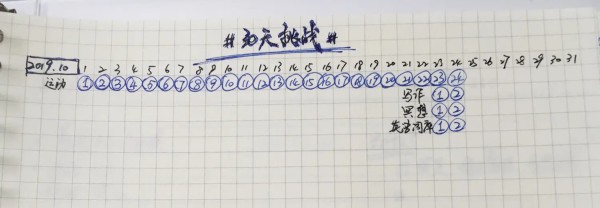 #30天挑战#
2019.10 1 2 3 4 5 6 7 8 9 10 11 12 13 14 15 16 17 18 19 20 21 22 23 24 25 26 27 28 29 30 31
运动 ① ② ③ ④ ⑤ ⑥ ⑦ ⑧ ⑨ ⑩ ⑪ ⑫ ⑬ ⑭ ⑮ ⑯ ⑰ ⑱ ⑲ ⑳ ㉑ ㉒ ㉓ ㉔
写作 ① ②
冥想 ① ②
① ②